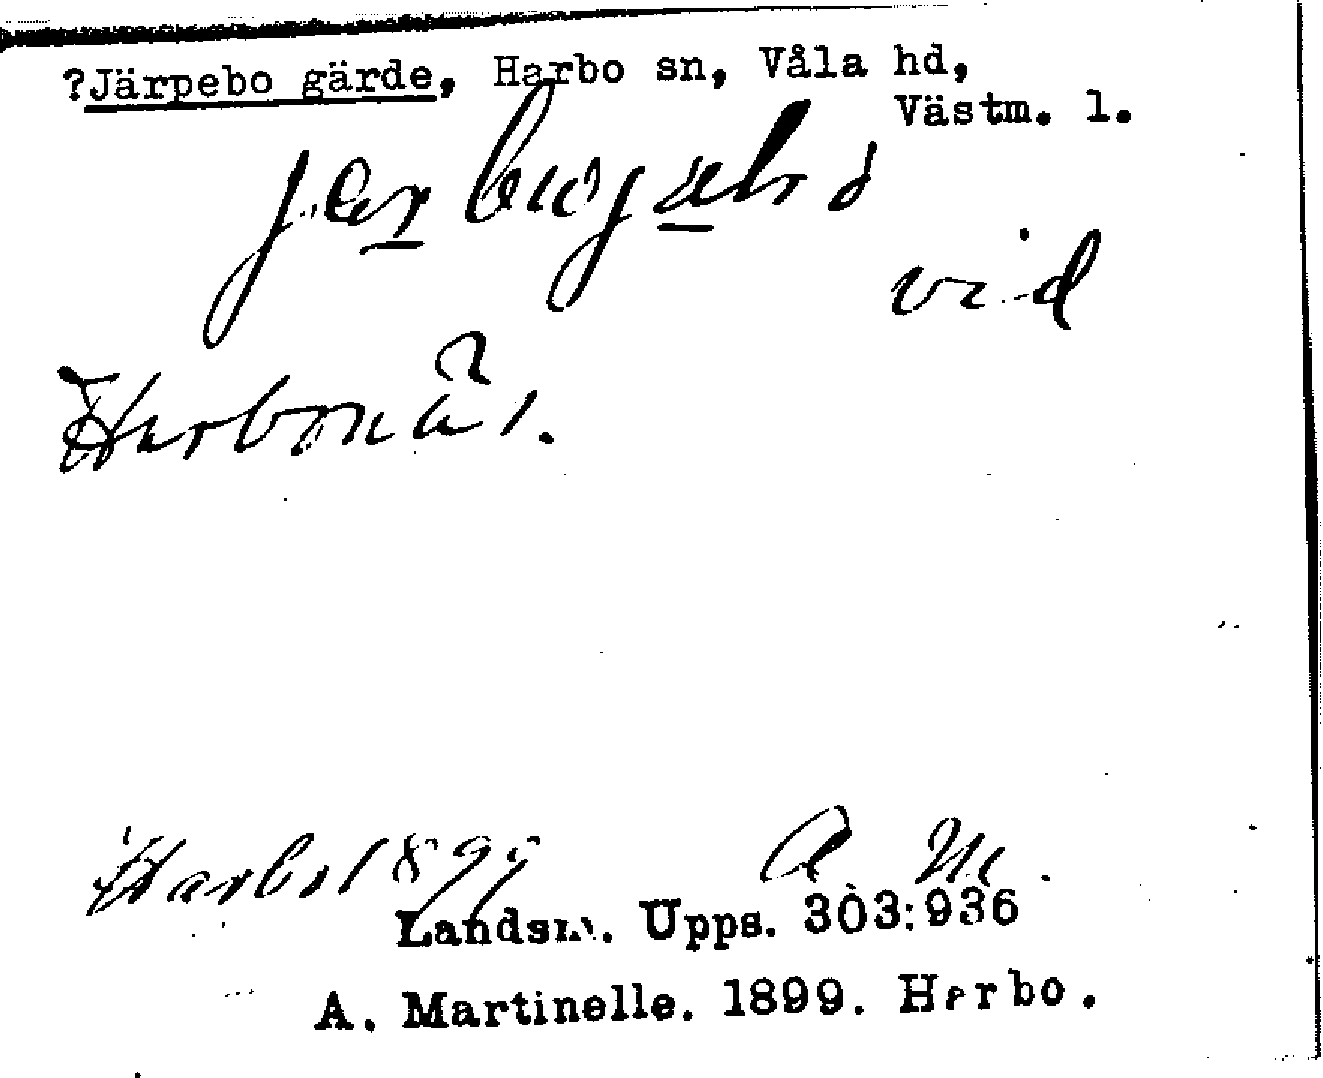 ?Järpebo gärde, Harbo sn, Våla hd,
Västm. l.
vid
Harbonäs.
Harbo 1899 A M.
Landsm. Upps. 303:936
A. Martinelle. 1899. Harbo.